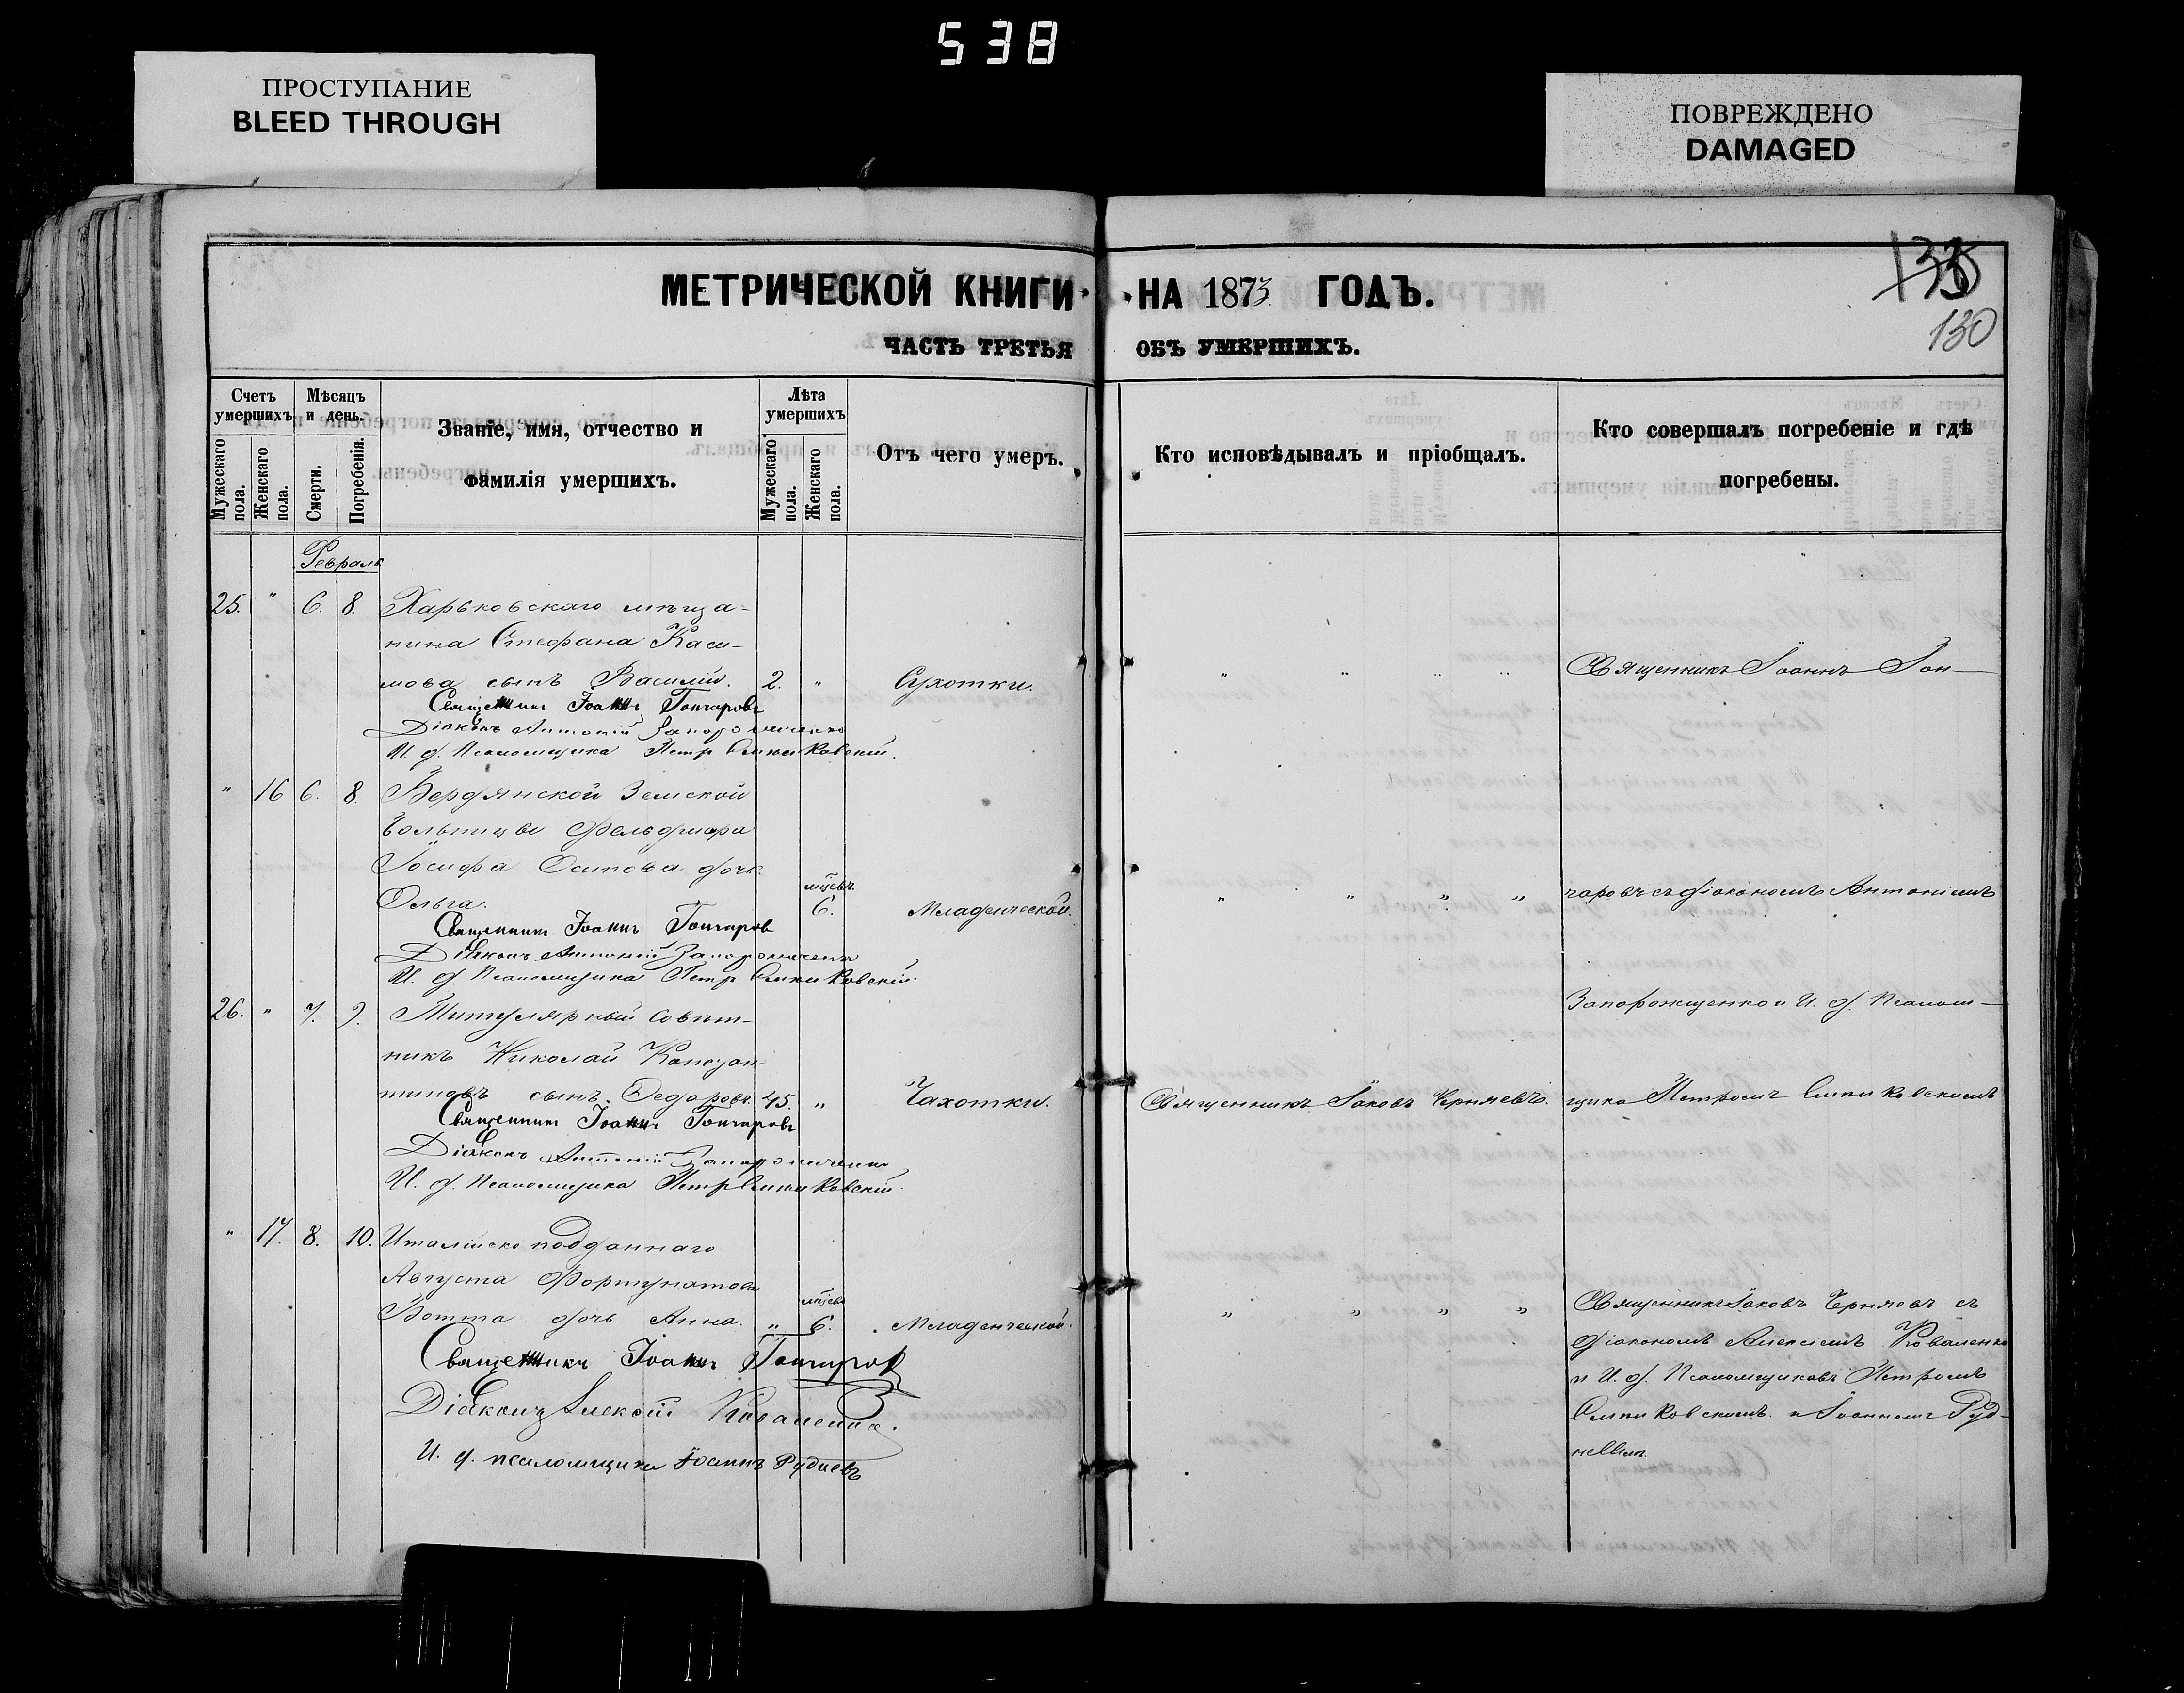 538
ПРОСТУПАНИЕ
BLEED THROUGH
ПОВРЕЖДЕНО
DAMAGED
МЕТРИЧЕСКОЙ КНИГИ НА 1873 ГОДЪ.
ЧАСТЬ ТРЕТЬЯ ОБЪ УМЕРШИХЪ.
130
Счетъ умершихъ
Мужескаго пола.
Женскаго пола.
Мѣсяцъ и день.
Смерти.
Погребенія.
Званіе, имя, отчество и
фамилія умершихъ.
Лѣта умершихъ
Мужескаго пола.
Женскаго пола.
Отъ чего умеръ.
Кто исповѣдывалъ и пріобщалъ.
Кто совершалъ погребеніе и гдѣ
погребены.
Февраль
25. " 6. 8. Харьковскаго мѣща-
нина Стефана Каси-
мова сынъ Василій. 2. " Сухотки. " " " " Священникъ Іоаннъ Гон-
Священникъ Іоаннъ Гончаровъ
Діаконъ Антоній Запорожченко
И. д. Псаломщика Петръ
" 16 6. 8. Бердянской Земской
больницы фельдшера
Іосифа Осипова дочь
Ольга. мцевъ 6. Младенческой. " " " " чаровъ съ діакономъ Антоніемъ
Священникъ Іоаннъ Гончаров
Діаконъ Антоній Запорожченко
И. д. Псаломщика Петръ
26. " 7. 9. Титулярный Совѣт- Запорожценко и И. д. Псалом-
никъ Николай Констан-
тиновъ сынъ Ѳедоровъ. 45. " Чахотки. Священникъ Іаковъ Черняевъ. щика Петромъ
Священникъ Іоаннъ Гончаровъ
Діаконъ Антоній Запорожченко
И. д. Псаломщика Петръ
" 17. 8. 10. Италіянско подданнаго
Августа Фортунатова
Вотта дочь Анна. " мцевъ 6. Младенческой. " " " " Священникъ Іаковъ Черняевъ съ
Священникъ Іоаннъ Гончаров діакономъ Алексіемъ Коваленко
Діаконъ Алексій Коваленко. и И. д. Псаломщиковъ Петромъ
и Іоанномъ Руд-
И. д. псаломщика Іоаннъ Рудневъ невым.